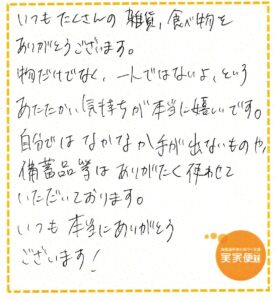 いつもたくさんの雑貨、食べ物を
ありがとうございます。
物だけでなく、一人ではないよ、という
あたたかい気持ちが本当に嬉しいです。
自分ではなかなか手が出ないものや、
備蓄品等はありがたく使わせて
いただいております。
いつも本当にありがとう
ございます!
実実便